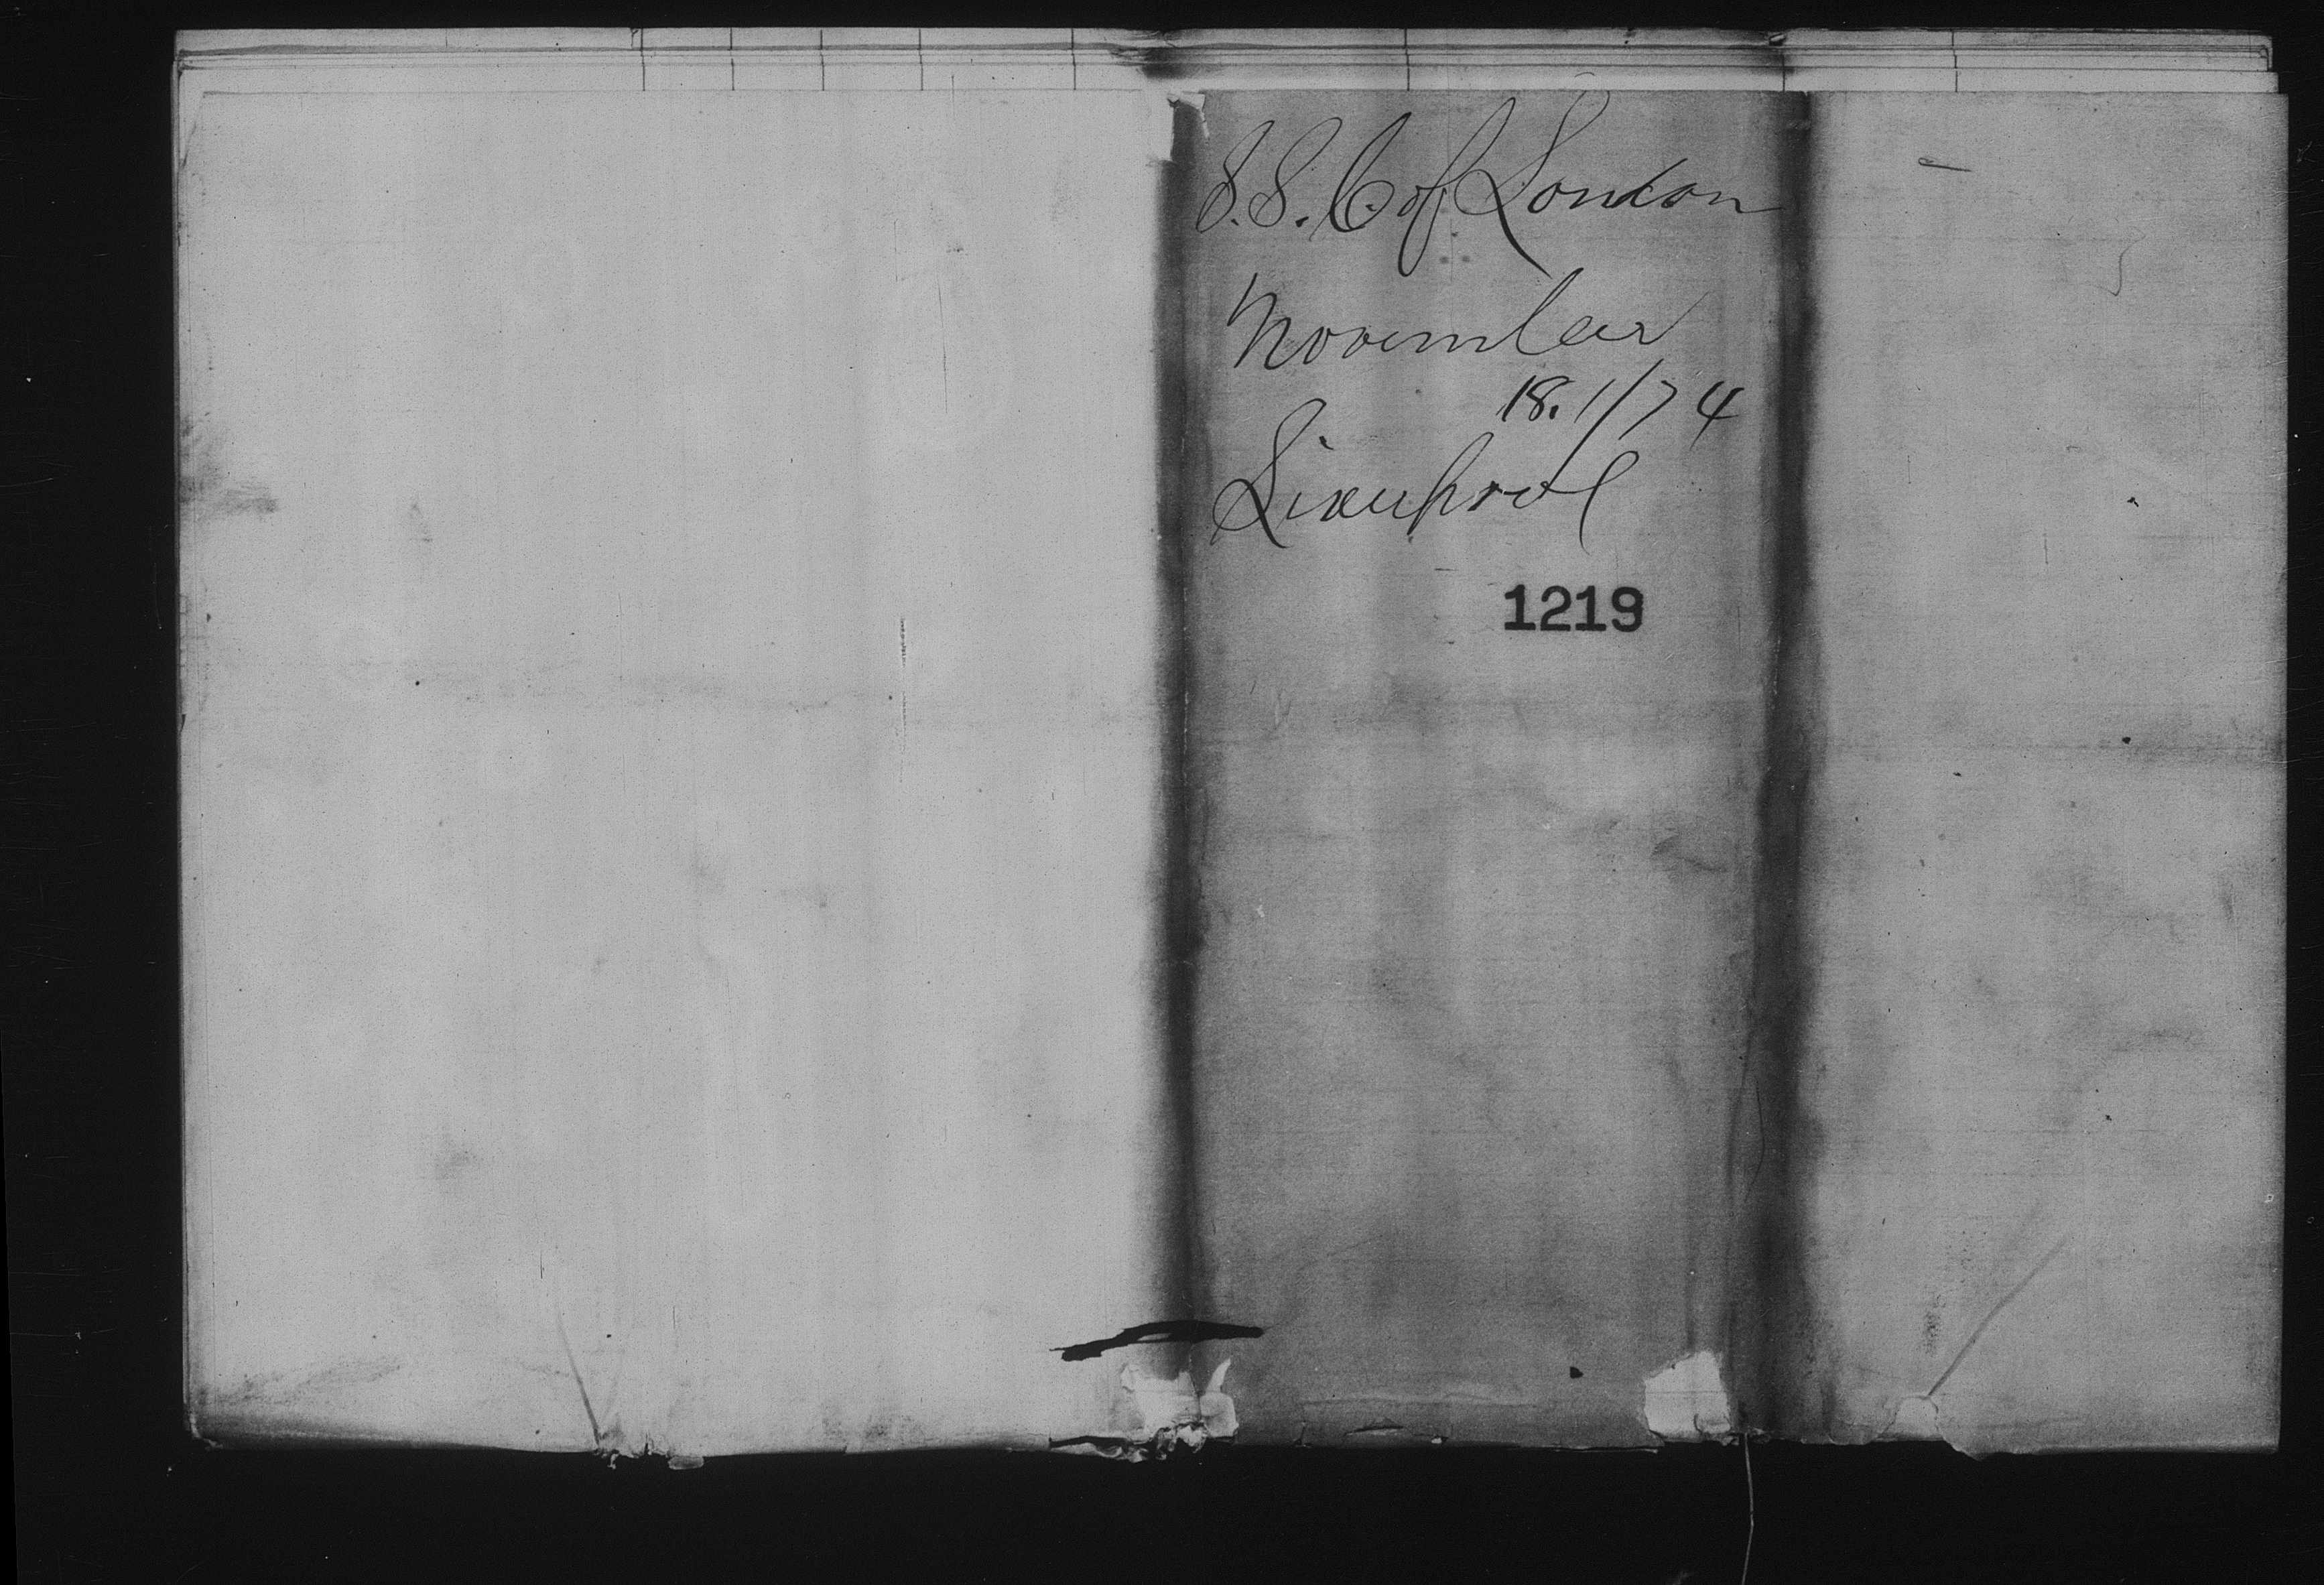 S.S. C. of London
November
18.1/74
Liverpool
1219